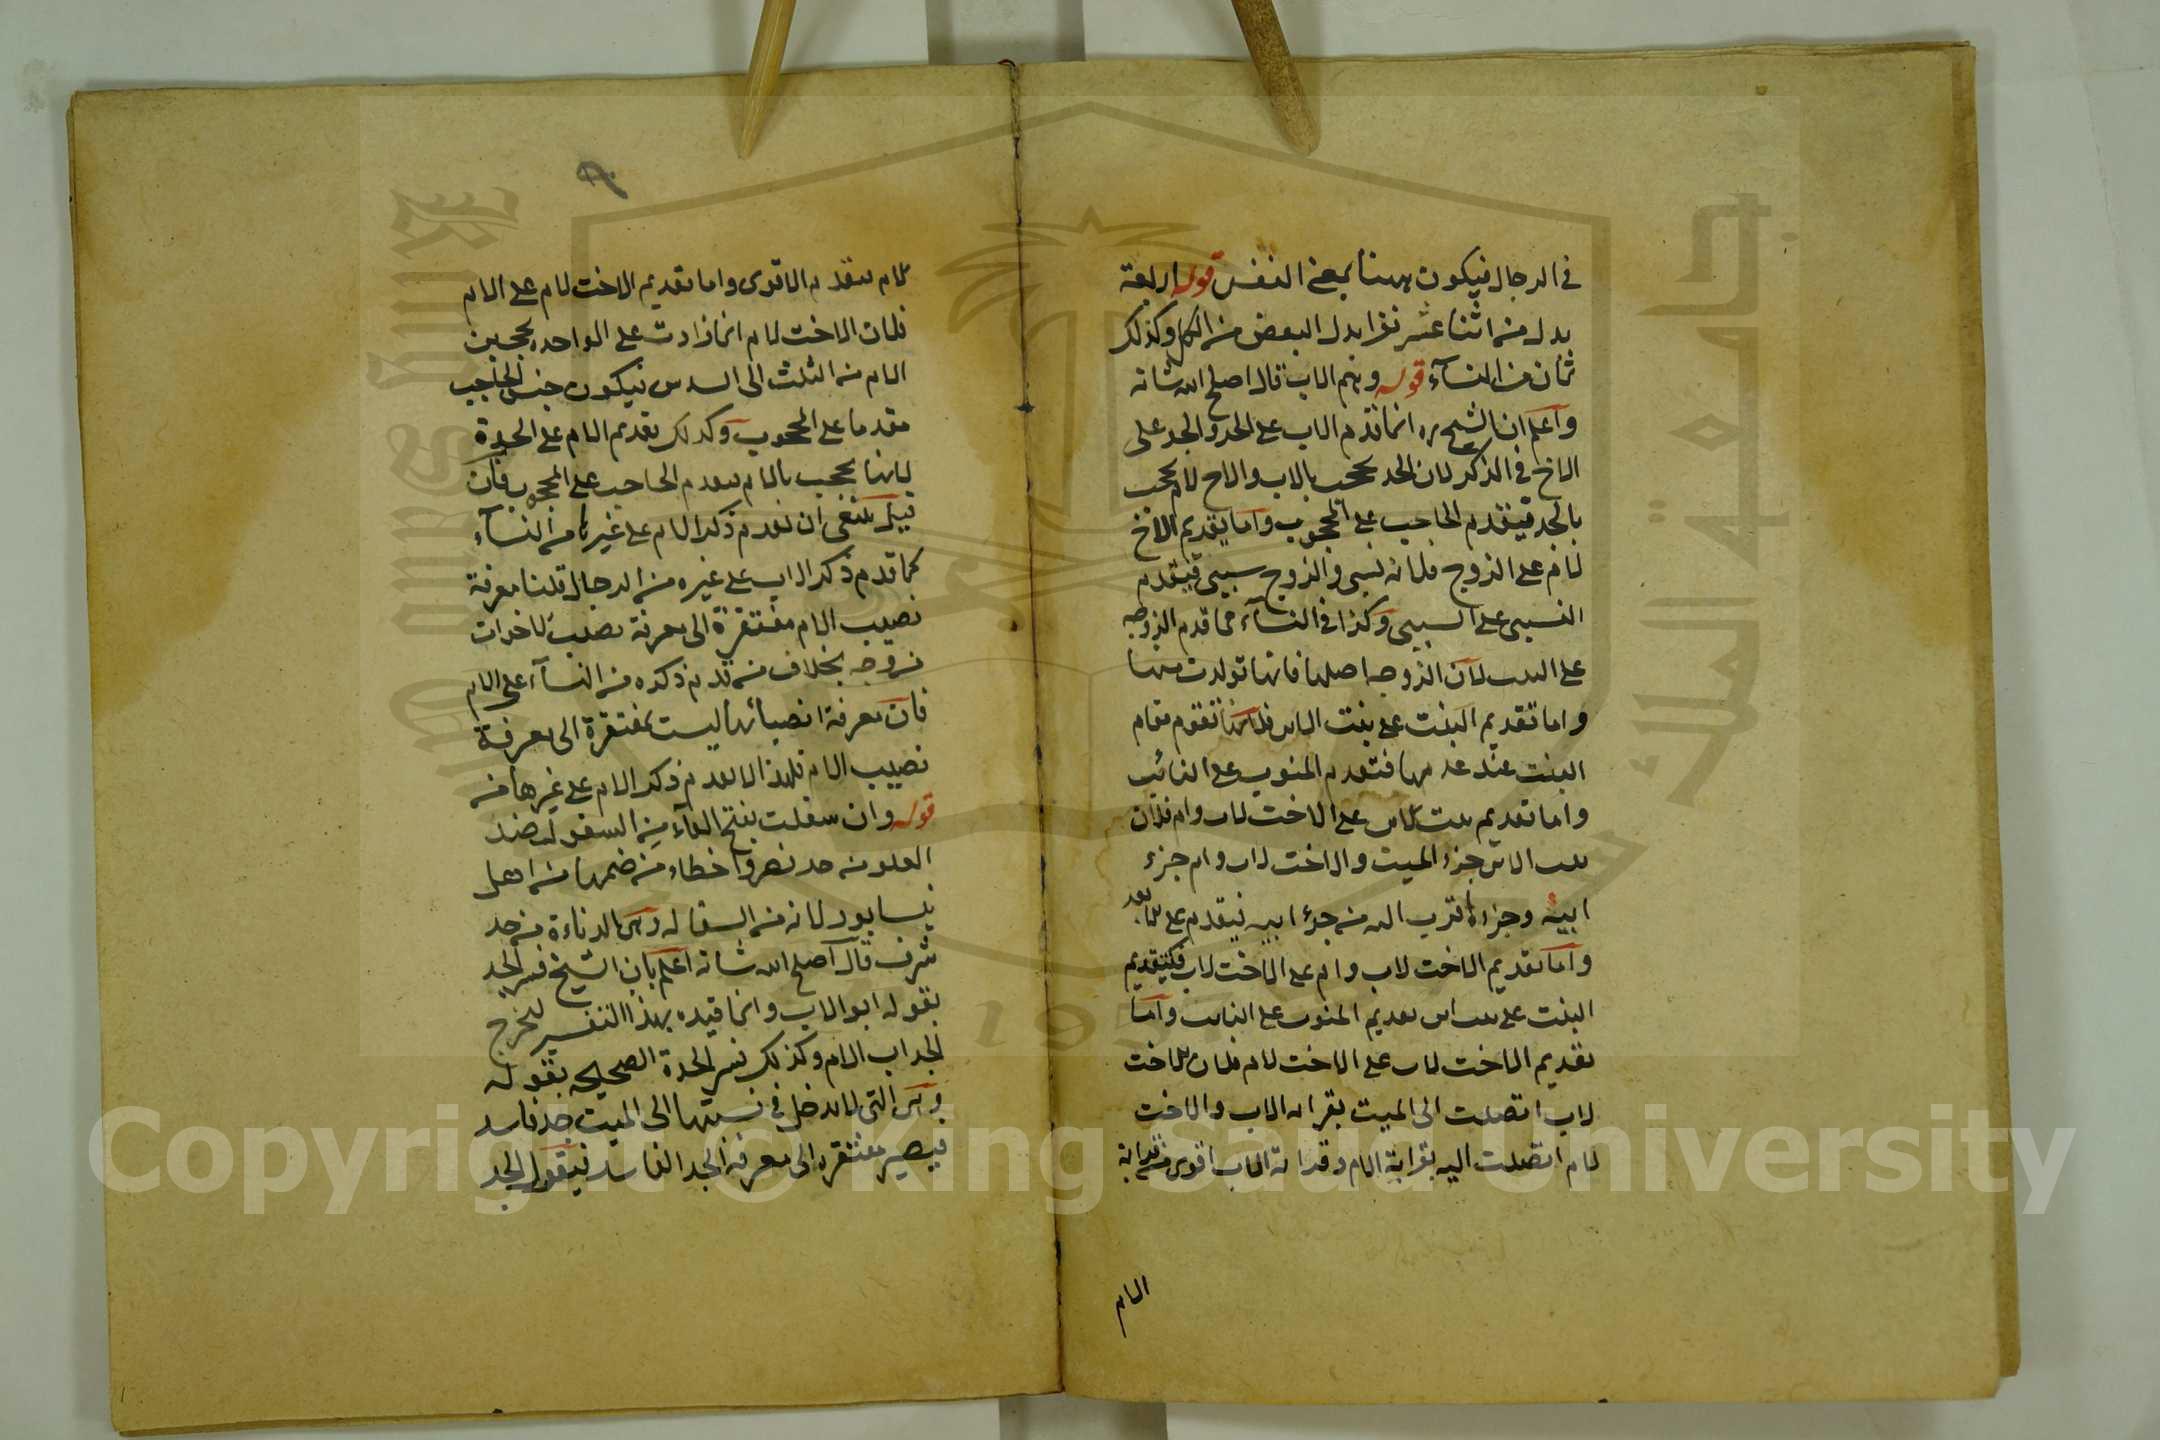 في الرجال فيكون ههنا بمعنى النفس قوله اربعة
بدل من اثنا عشر نفرا بدل البعض من الكل وكذلك
ثمان من النسآء قوله ومنهم الاب قال اصلح الله شانه
واعلم ان الشيخ ره انما قدم الاب على الجد والجد على
الاخ في الذكر لان الجد يحجب بالاب والاخ لام يحجب
بالجد فيتقدم الحاجب على المحجوب واما تقديم الاخ
لام على الزوج فلانه نسبى والزوج سببى فيقدم
النسبى على السببى وكذا في النسآء انما قدم الزوجه
على البنت لان الزوجه اصلها فانها تولدت منها
واما تقديم البنت على بنت الابن فلانها تقوم مقام
البنت عند عدمها فتقدم المنوب على النائب
واما تقديم بنت الابن على الاخت لاب وام فلان
بنت الابن جزء الميت والاخت لاب وام جزء
ابيه وجزءه اقرب اليه من جزء ابيه فيقدم على
واما تقديم الاخت لاب وام على الاخت لاب فكتقديم
البنت على بنت ابن تقديم المنوب على النائب واما
تقديم الاخت لاب على الاخت لام فلان الاخت
لاب اتصلت الى الميت بقرابه الاب والاخت
لام اتصلت اليه بقرابة الام وقرابة الاب اقوى من قرابة
الام
الام فيقدم الاقوى واما تقديم الاخت لام على الام
فلان الاخت لام اذا زادت على الواحده يحجبن
الام من الثلث الى السدس فيكون جنس الحاجب
مقدما على المحجوب وكذلك تقديم الام على الجدة
لانها يحجب بالام فيقدم الحاجب على المحجوب فان
قيل ينبغى ان يقدم ذكر الام على غيرها من النسآء
كما قدم ذكر الاب على غيره من الرجال قلنا معرفة
نصيب الام مفتقرة الى معرفة نصيب الاخوات
زوجه بخلاف من قدم ذكره من النسآء على الام
فان معرفة انصبائها ليست بمفتقرة الى معرفة
نصيب الام فلهذا لا يقدم ذكر الام على غيرها منه
قوله وان سفلت بفتح الفاء من السفول ضد
العلو من حد نصر واخطاء من ضمها من اهل
نيسابور لانه من السفاله وهى الدناءة من حد
شرف قال اصلح الله شانه اعلم بان الشيخ فسر الجد
بقوله ابو الاب وانما قيده بهذا التفسير ليخرج
الجد اب الام وكذلك فسر الجدة الصحيحه بقوله
وهى التى لا يدخل في نسبتها الى الميت جد فاسد
فيصير مفتقره الى معرفة الجد الفاسد فيقول الجد